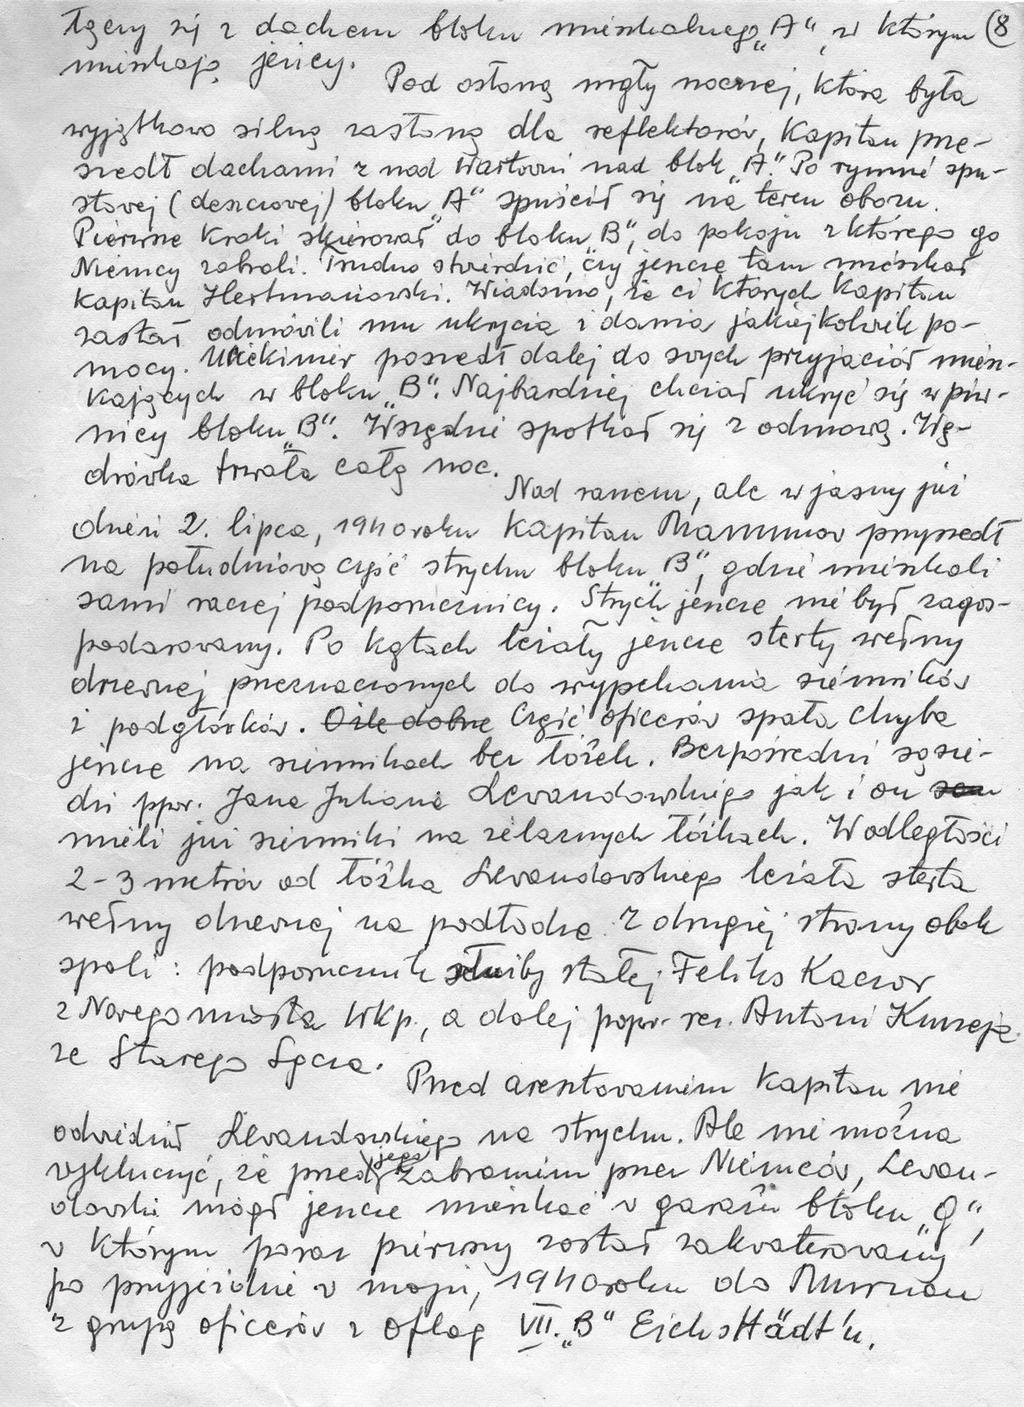 łączy się z dachem bloku mieszkalnego „A", w którym (8
mieszkają jeńcy.
Pod osłoną mgły nocnej, która była
wyjątkowo silną zasłoną dla reflektorów, Kapitan prze-
szedł dachami z nad Wartowni nad blok „A". Po rynnie spu-
stowej (deszczowej) bloku „A" spuścił się na teren obozu.
Pierwsze Kroki skierował do bloku „B", do pokoju z którego go
Niemcy zabrali. Trudno stwierdzić, czy jeszcze tam mieszkał
Kapitan Hertmanowski. Wiadomo, że ci których Kapitan
zastał odmówili mu ukrycia i dania jakiejkolwiek po-
mocy. Uciekinier poszedł dalej do swych przyjaciół miesz-
kających w bloku „B". Najbardziej chciał ukryć się w piw-
nicy bloku „B". Wszędzie spotkał się z odmową. Wę-
drówka trwała całą noc.
Nad ranem, ale w jasny już
dzień 2. lipca, 1940 roku Kapitan przyszedł
na południową część strychu bloku „B", gdzie mieszkali
sami raczej podporucznicy. Strych jeszcze nie był zagos-
podarowany. Po kątach leżały jeszcze sterty wełny
drzewnej przeznaczonych do wypchania sienników
i podgłówków. O ile dobrze Część oficerów spała chyba
jeszcze na siennikach bez łóżek. Bezpośredni sąsie-
dzi ppor. Jana Juliana Lewandowskiego jak i on sam
mieli już sienniki na żelaznych łóżkach. W odległości
2-3 metrów od łóżka Lewandowskiego leżała sterta
wełny drzewnej na podłodze. Z drugiej strony obok
spali: podporucznik służby stałej Feliks Kaczor
z Nowego miasta Wkp., a dalej ppor. rez. Antoni
ze Starego Sącza.
Przed aresztowaniem Kapitan nie
odwiedził Lewandowskiego na strychu. Ale nie można
wykluczyć, że przed jego zabraniem przez Niemców, Lewan-
dowski mógł jeszcze mieszkać w garażu bloku „G",
w którym poraz pierwszy został zakwaterowany
po przyjeździe w maju, 1940 roku do Murnau
z grupą oficerów z oflag VII. „B" Eichstädt'u.